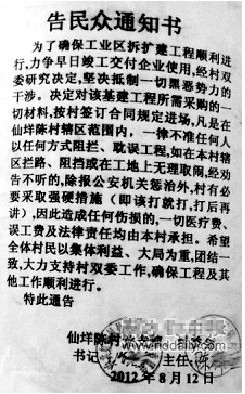 告民众通知书
为了确保工业区拆扩建工程顺利进
行,力争早日竣工交付企业使用,经村双
委研究决定,坚决抵制一切黑恶势力的
干涉。决定对该基建工程所需采购的一
切材料,按村签订合同规定进场,凡是在
仙垟陈村辖区范围内,一律不准任何人
以任何方式阻拦、耽误工程,如在本村辖
区拦路、阻挡或在工地上无理取闹,经劝
告不听的,除报公安机关惩治外,村有必
要采取强硬措施(即该打就打,打后再
讲),因此造成任何伤损的,一切医疗费、
误工费及法律责任均由本村承担。希望
全体村民以集体利益、大局为重,团结一
致,大力支持村双委工作,确保工程及其
他工作顺利进行。
特此通告
仙垟陈村
书记 主任
2012年8月12日